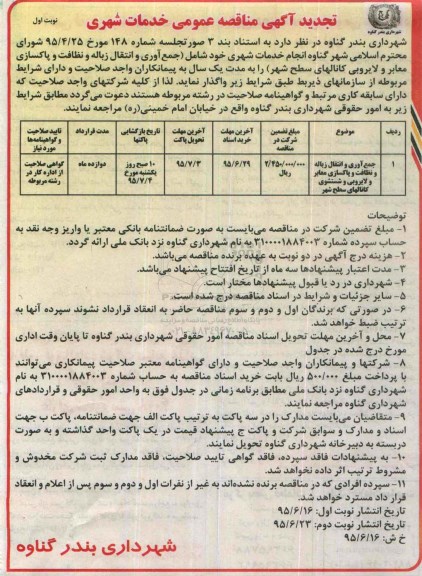 نوبت اول
تجدید آگهی مناقصه عمومی خدمات شهری
شهرداری بندر گناوه
شهرداری بندر گناوه در نظر دارد به استناد بند ۳ صورتجلسه شماره ۱۴۸ مورخ ۹۵/۴/۲۵ شورای
محترم اسلامی شهر گناوه انجام خدمات شهری خود شامل (جمع‌آوری و انتقال زباله و نظافت و پاکسازی
معابر و لایروبی کانالهای سطح شهر) را به مدت یک سال به پیمانکاران واجد صلاحیت و دارای شرایط
مربوطه از سازمانهای ذیربط طبق شرایط زیر واگذار نماید. لذا از کلیه شرکتهای واجد صلاحیت که
دارای سابقه کاری مرتبط و گواهینامه صلاحیت در رشته مربوطه هستند دعوت می‌گردد مطابق شرایط
زیر به امور حقوقی شهرداری بندر گناوه واقع در خیابان امام خمینی(ره) مراجعه نمایند.
ردیف | موضوع | مبلغ تضمین شرکت در مناقصه | آخرین مهلت خرید اسناد | آخرین مهلت تحویل پاکت | تاریخ بازگشایی پاکتها | مدت قرارداد | تایید صلاحیت و گواهینامه‌ها مورد نیاز
۱ | جمع‌آوری و انتقال زباله و نظافت و پاکسازی معابر و لایروبی و شستشوی کانالهای سطح شهر | ۲/۴۵۰/۰۰۰/۰۰۰ ریال | ۹۵/۶/۲۹ | ۹۵/۷/۳ | ۱۰ صبح روز یکشنبه مورخ ۹۵/۷/۴ | دوازده ماه | گواهی صلاحیت از اداره کار در رشته مربوطه
توضیحات
۱- مبلغ تضمین شرکت در مناقصه می‌بایست به صورت ضمانتنامه بانکی معتبر یا واریز وجه نقد به
حساب سپرده شماره ۳۱۰۰۰۰۱۸۸۴۰۰۳ به نام شهرداری گناوه نزد بانک ملی ارائه گردد.
۲- هزینه درج آگهی در دو نوبت به عهده برنده مناقصه می‌باشد.
۳- مدت اعتبار پیشنهادها سه ماه از تاریخ افتتاح پیشنهاد می‌باشد.
۴- شهرداری در رد یا قبول پیشنهادها مختار است.
۵- سایر جزئیات و شرایط در اسناد مناقصه درج شده است.
۶- در صورتی که برندگان اول و دوم و سوم مناقصه حاضر به انعقاد قرارداد نشوند سپرده آنها به
ترتیب ضبط خواهد شد.
۷- محل و آخرین مهلت تحویل اسناد مناقصه امور حقوقی شهرداری بندر گناوه تا پایان وقت اداری
مورخ درج شده در جدول
۸- شرکتها و پیمانکاران واجد صلاحیت و دارای گواهینامه معتبر صلاحیت پیمانکاری می‌توانند
با پرداخت مبلغ ۵۰۰/۰۰۰ ریال بابت خرید اسناد مناقصه به حساب شماره ۳۱۰۰۰۰۱۸۸۴۰۰۳ به نام
شهرداری گناوه نزد بانک ملی مطابق برنامه زمانی در جدول فوق به واحد امور حقوقی و قراردادهای
شهرداری گناوه مراجعه نمایند.
۹- متقاضیان می‌بایست مدارک را در سه پاکت به ترتیب پاکت الف جهت ضمانتنامه، پاکت ب جهت
اسناد و مدارک و سوابق شرکت و پاکت ج پیشنهاد قیمت در یک پاکت واحد گذاشته و به صورت
دربسته به دبیرخانه شهرداری گناوه تحویل نمایند.
۱۰- به پیشنهادات فاقد سپرده، فاقد گواهی تایید صلاحیت، فاقد مدارک ثبت شرکت مخدوش و
مشروط ترتیب اثر داده نخواهد شد.
۱۱- سپرده افرادی که در مناقصه برنده نشده‌اند به غیر از نفرات اول و دوم و سوم پس از اعلام و انعقاد
قرار داد مسترد خواهد شد.
تاریخ انتشار نوبت اول: ۹۵/۶/۱۶
تاریخ انتشار نوبت دوم: ۹۵/۶/۲۳
خ ش: ۹۵/۶/۱۶
شهرداری بندر گناوه